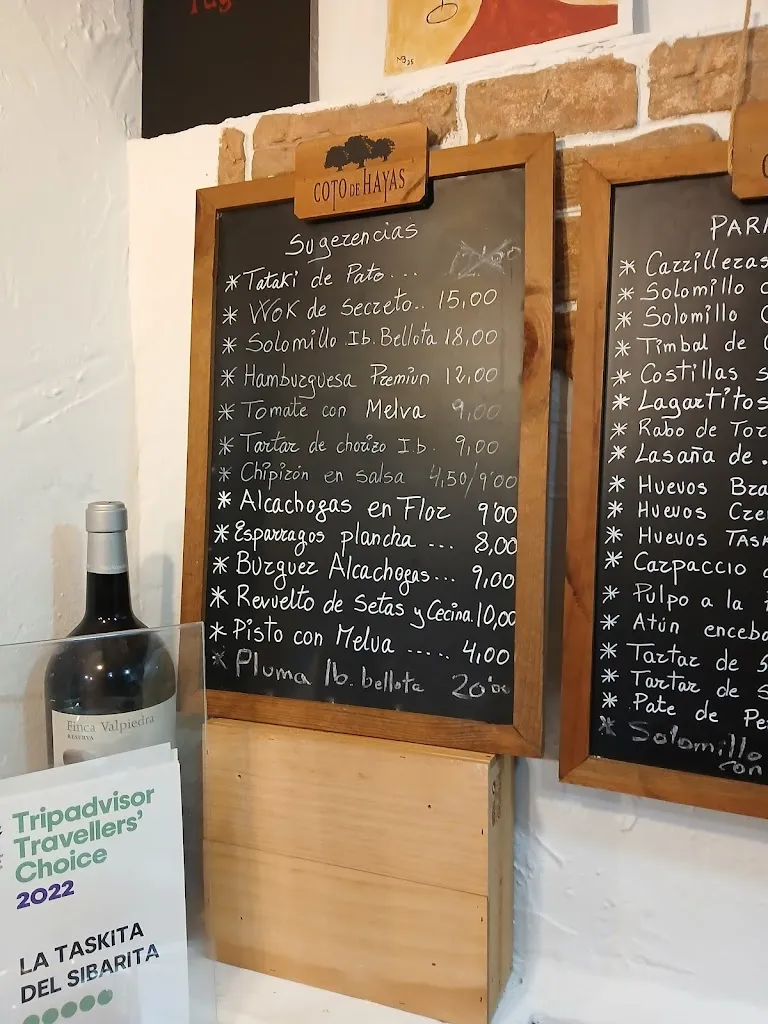 COTO DE HAYAS
Sugerencias
* Tataki de Pato... 12,00
* Wok de Secreto.. 15,00
* Solomillo Ib. Bellota 18,00
* Hamburguesa Premiun 12,00
* Tomate con Melva 9,00
* Tartar de chorizo Ib. 9,00
* Chipirón en salsa 4,50/9'00
* Alcachogas en Flor 9'00
* Esparragos plancha ... 8,00
* Burguer Alcachogas... 9,00
* Revuelto de Setas y Cecina. 10,00
* Pisto con Melva ..... 4,00
* Pluma Ib. bellota 20'00
* Carrilleras
* Solomillo
* Solomillo
* Timbal de
* Costillas
* Lagartitos
* Rabo de
* Lasaña de
* Huevos
* Huevos
* Huevos
* Carpaccio
* Pulpo a la
* Atún
* Tartar de
* Tartar de
* Pate de
* Solomillo
con
Finca Valpiedra
RESERVA
Tripadvisor
Travellers'
Choice
2022
LA TASKITA
DEL SIBARITA